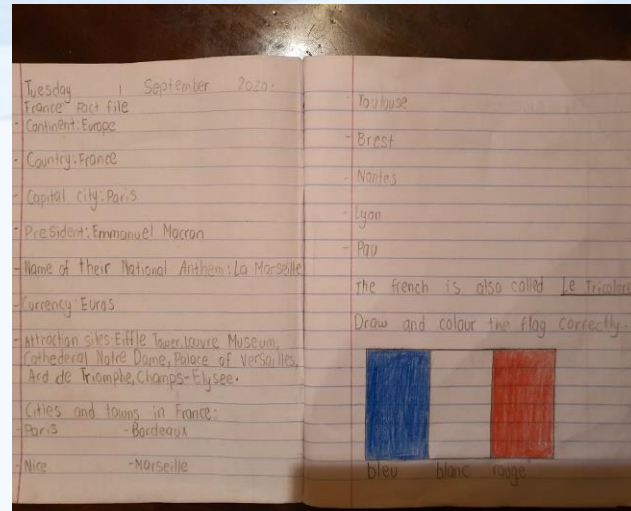 Tuesday 1 September 2020.
France Fact file
- Continent: Europe
- Country: France
- Capital city: Paris
- President: Emmanuel Macron
- Name of their National Anthem: La Marseille
- Currency: Euros
- Attraction sites: Eiffle Tower, Louvre Museum,
Cathederal Notre Dame, Palace of Versailles,
Ard de Triomphe, Champs-Elysee.
Cities and towns in France:
- Paris - Bordeaux
- Nice - Marseille
- Toulouse
- Brest
- Nantes
- Lyon
- Pau
The french is also called Le Tricolore
Draw and colour the flag correctly.
bleu blanc rouge